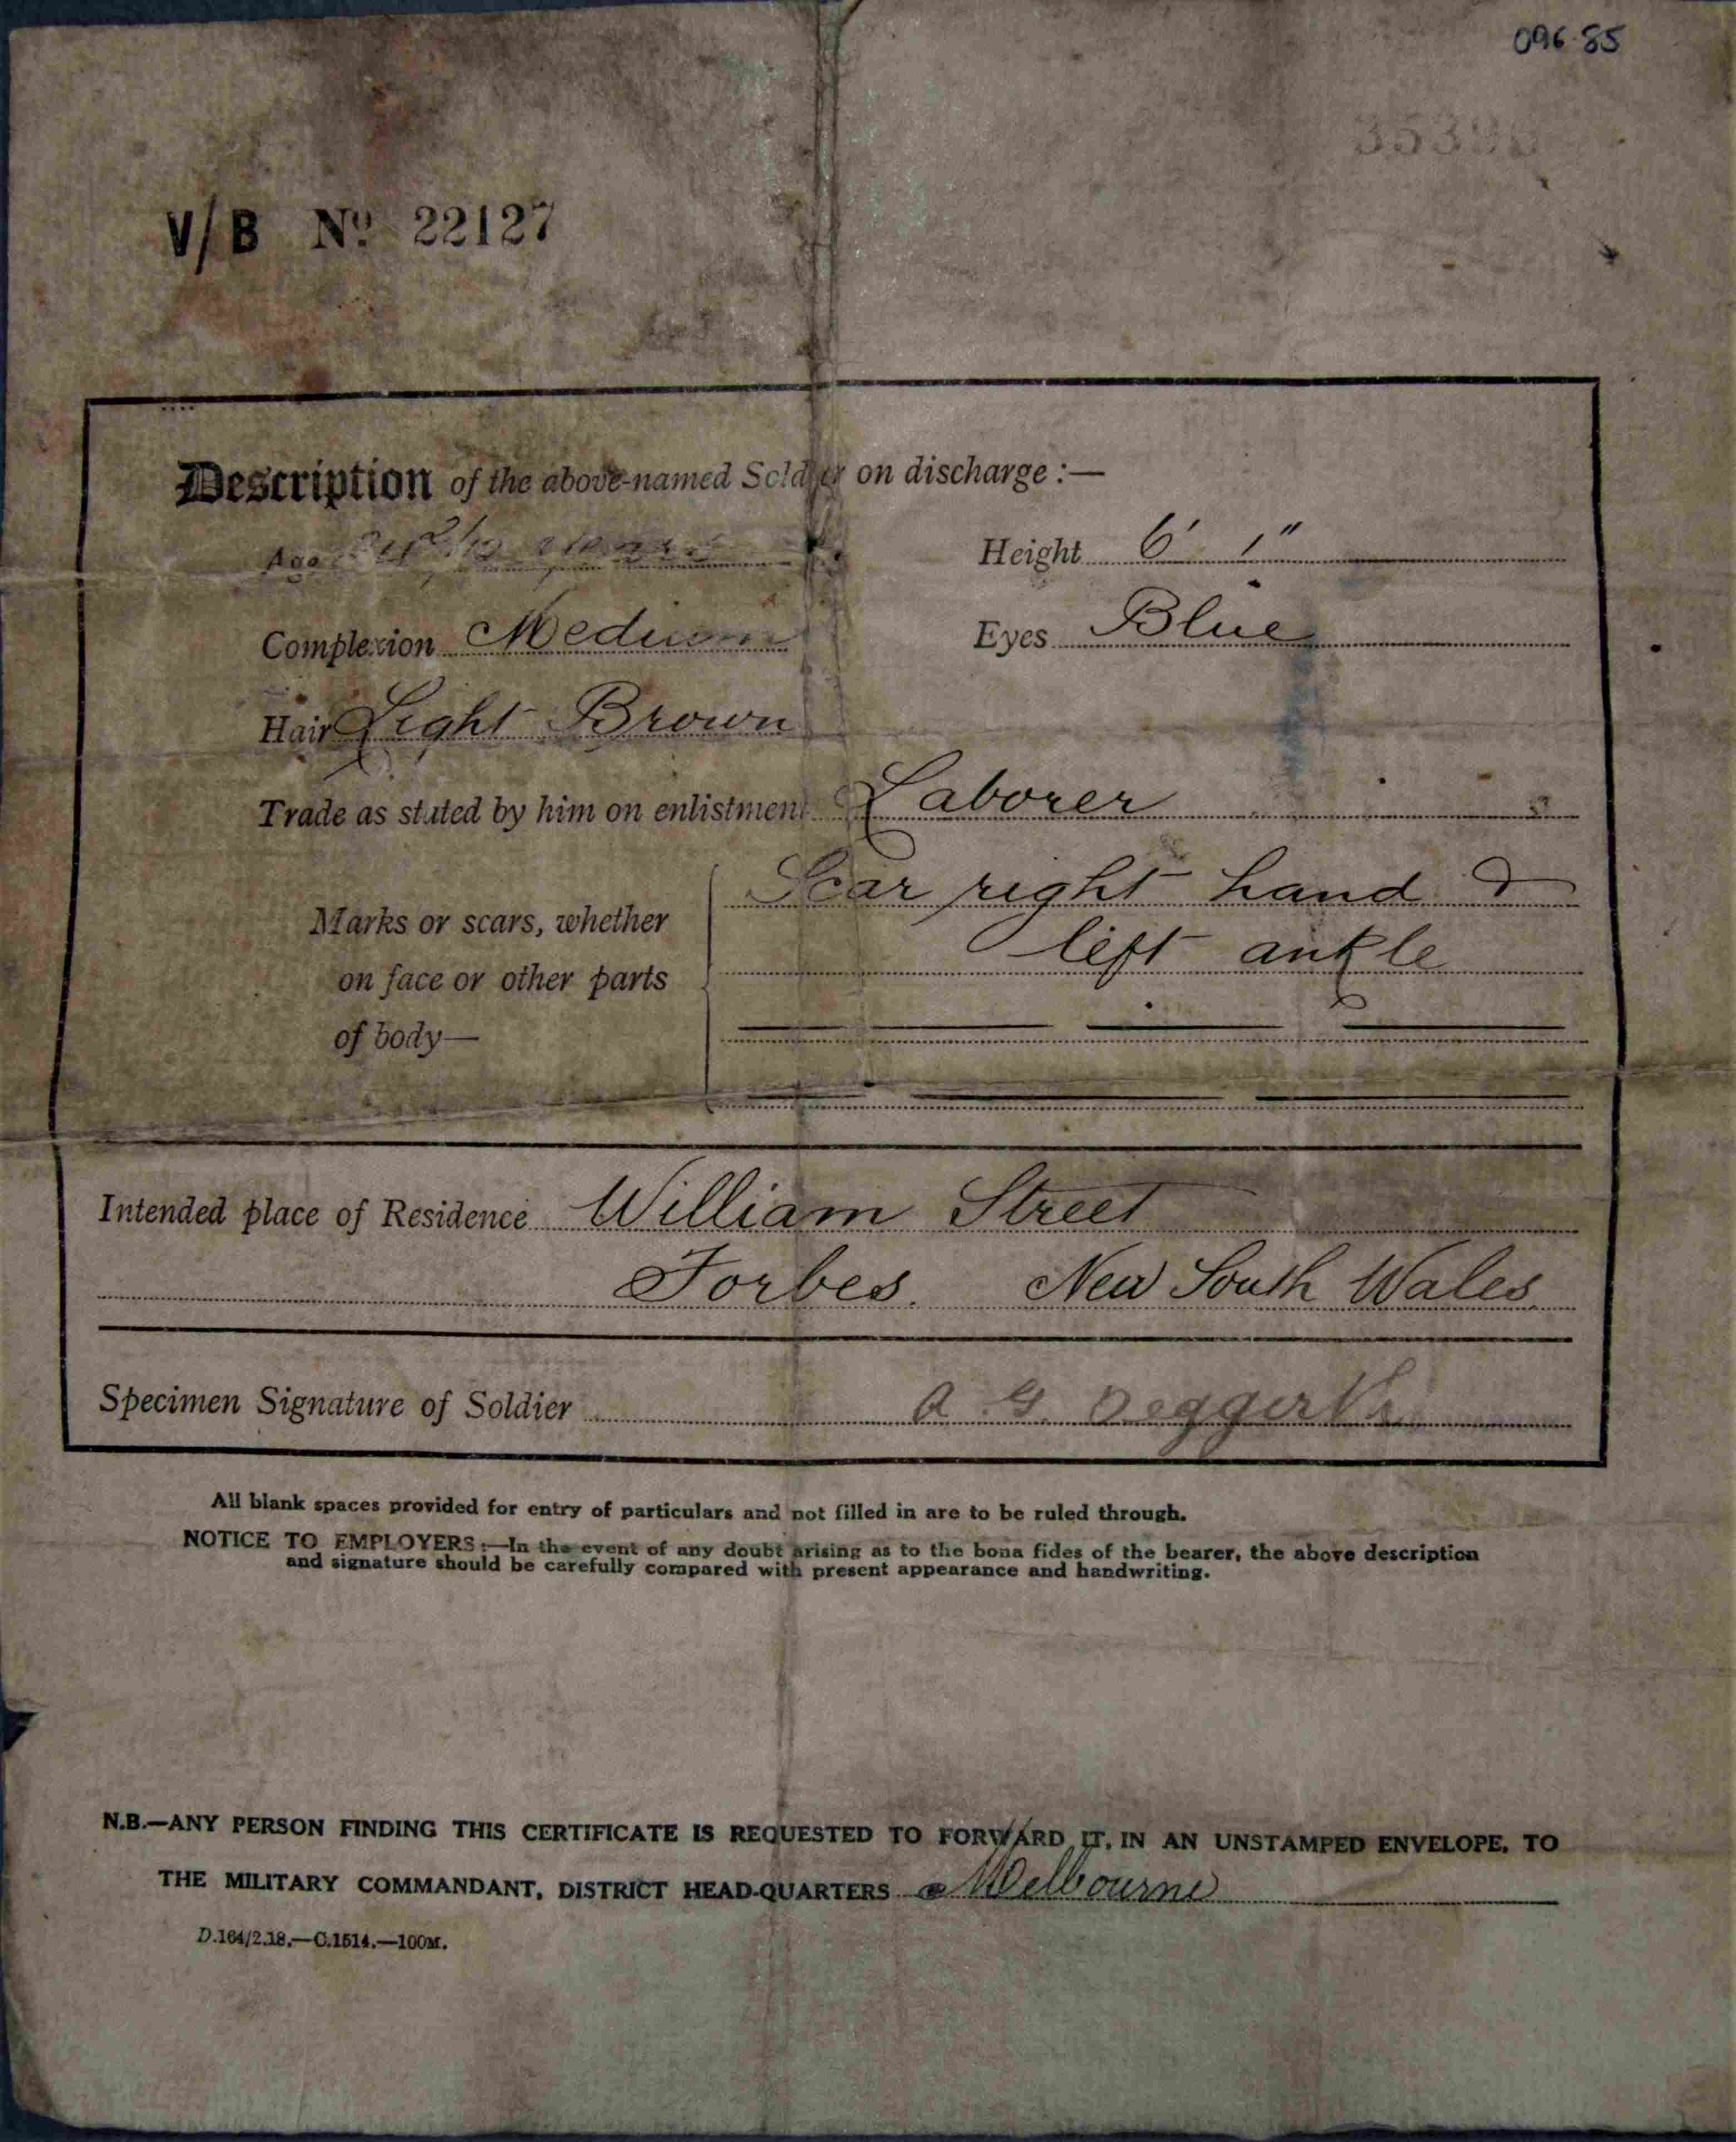 096.85
V/B No. 22127
Description of the above-named Soldier on discharge :—
Age
Height 6' 1"
Complexion Medium
Eyes Blue
Hair Light Brown
Trade as stated by him on enlistment Laborer
Marks or scars, whether on face or other parts of body—
Scar right hand &
left ankle
Intended place of Residence William Street
Forbes. New South Wales
Specimen Signature of Soldier A. G.
All blank spaces provided for entry of particulars and not filled in are to be ruled through.
NOTICE TO EMPLOYERS :—In the event of any doubt arising as to the bona fides of the bearer, the above description
and signature should be carefully compared with present appearance and handwriting.
N.B.—ANY PERSON FINDING THIS CERTIFICATE IS REQUESTED TO FORWARD IT, IN AN UNSTAMPED ENVELOPE, TO
THE MILITARY COMMANDANT, DISTRICT HEAD-QUARTERS Melbourne
D.164/2.18.—C.1514.—100M.